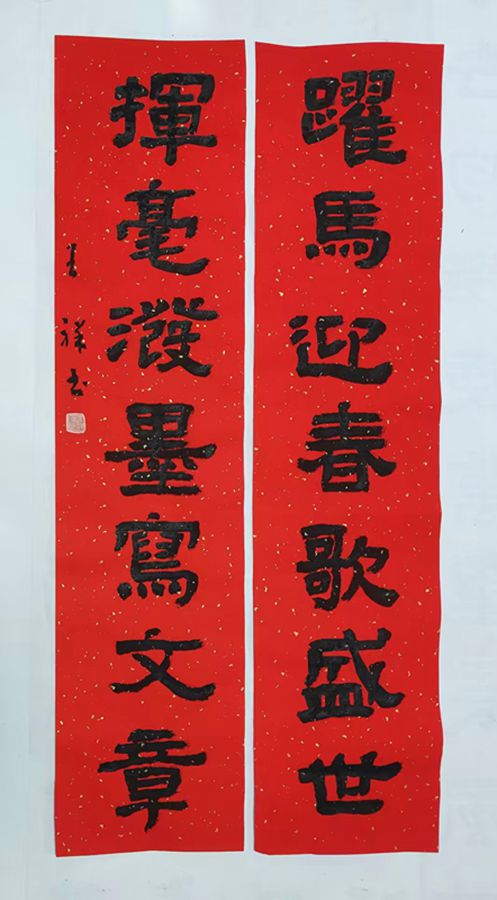 躍馬迎春歌盛世
揮毫潑墨寫文章
祥书